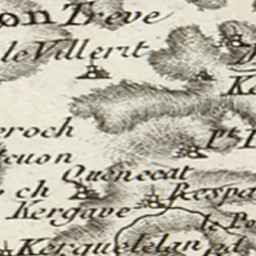 on Treve
le Villerit
K
eroch
pt. L
cuon
Quenecat
ch
Respa
Kergave
le Po
Kerguelelan
pd